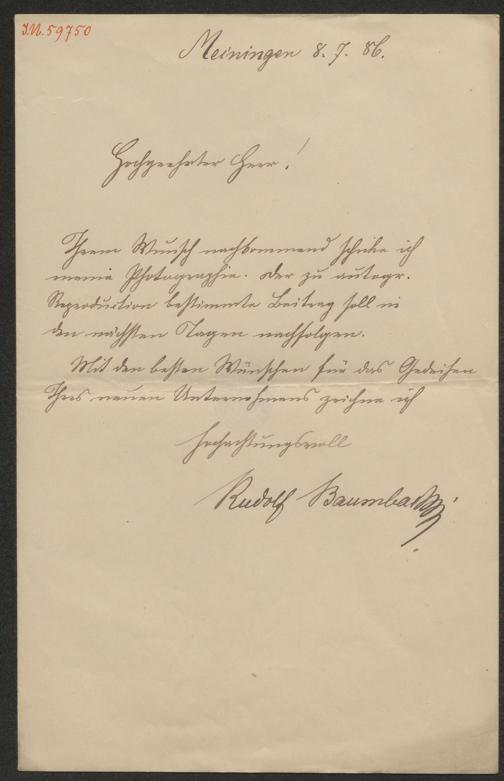 J.N. 59750
Meiningen 8. 7. 86.
Hochgeehrter Herr!
Ihrem Wunsch nachkommend schicke ich
meine Photographie. Der zu autogr.
Reproduction bestimmte Beitrag soll in
den nächsten Tagen nachfolgen.
Mit den besten Wünschen für das Gedeihen
Ihres neuen Unternehmens zeichne ich
hochachtungsvoll
Rudolf Baumbach